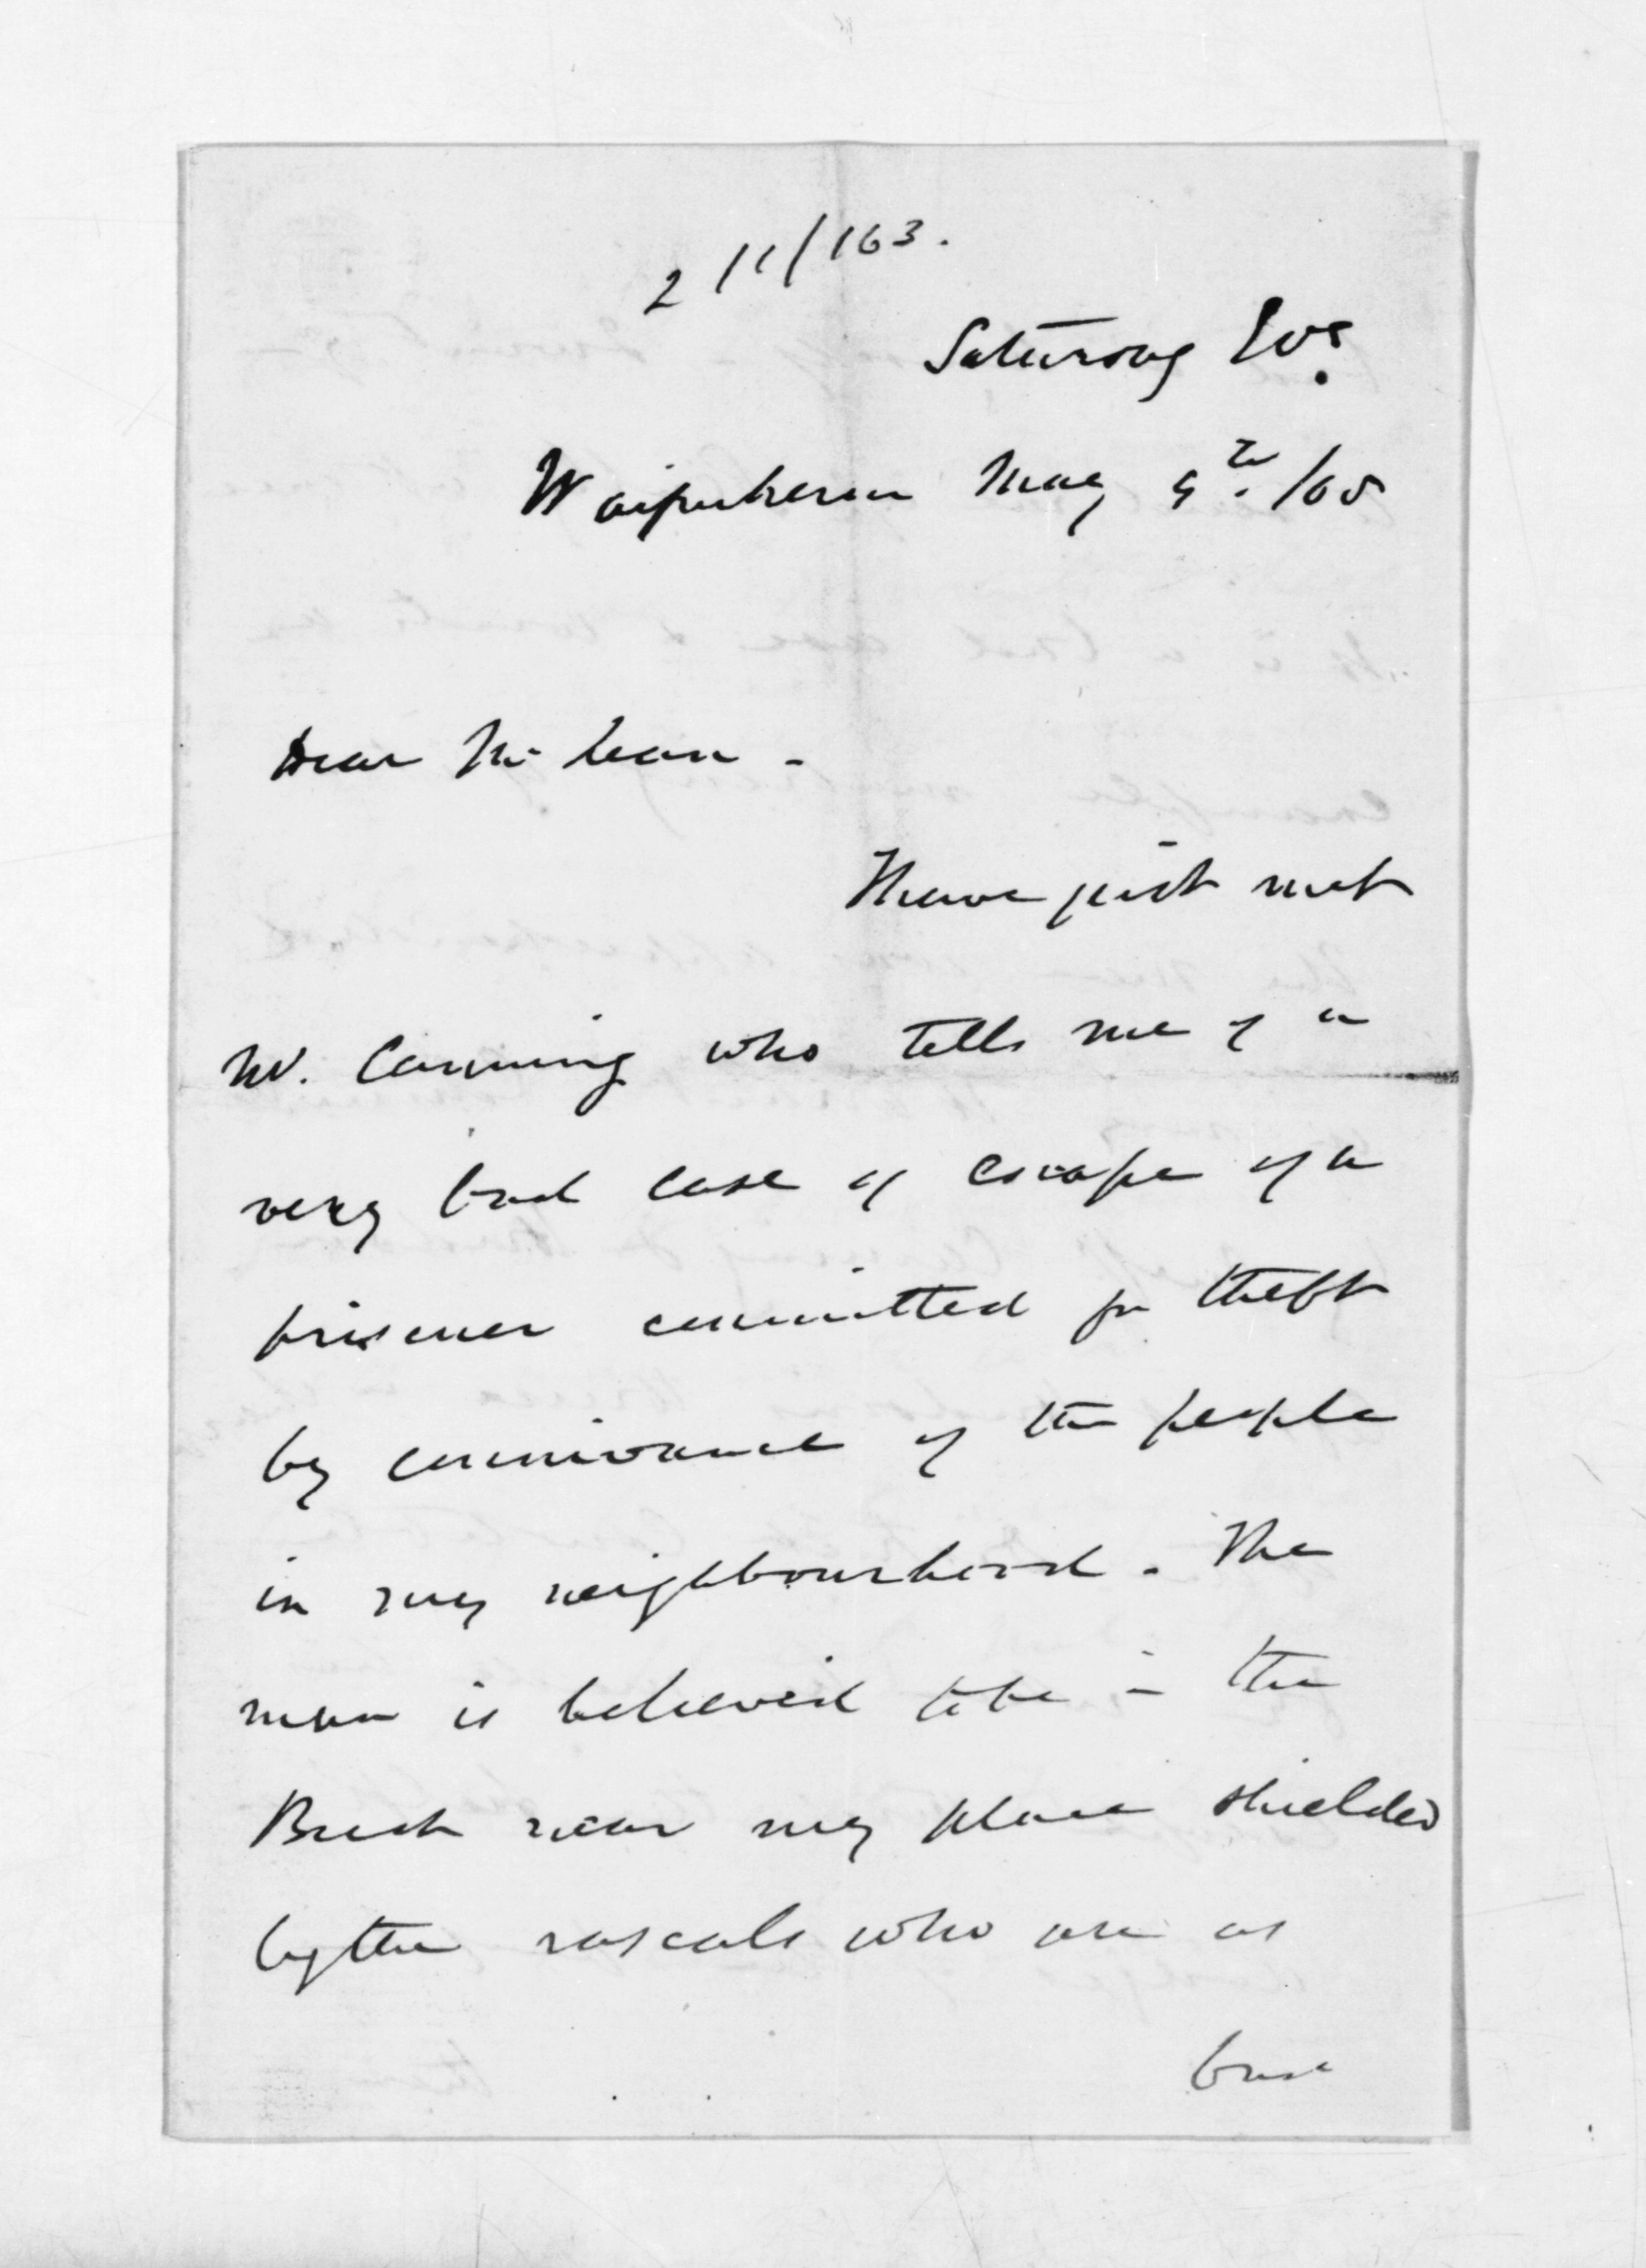 2 11/163.
Saturday Eve.
Waipukurau May 9th /68
Dear McLean -
I have just met
Mr. Canning who tells me of a
very bad case of escape of a
prisoner committed for theft
by connivance of the people
in my neighbourhood. The
man is believed to be in the
Bush near my place shielded
by the rascals who are as